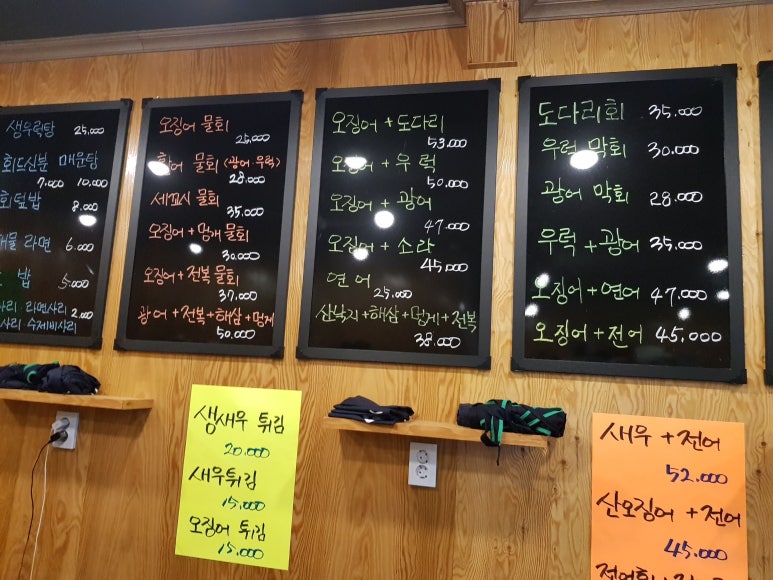 생우럭탕 25.000
회뜨신분 매운탕
7.000 10.000
회덮밥 8.000
라면 6.000
밥 5.000
라면사리 2.000
수제비사리
오징어 물회
25.000
물회 (광어.우럭)
28.000
세꼬시 물회
35.000
오징어+멍게 물회
30.000
오징어+전복 물회
37.000
광어+전복+해삼+멍게
50.000
오징어+도다리
53.000
오징어+우럭
50.000
오징어+광어
47.000
오징어+소라
45.000
연어
25.000
산낙지+해삼+멍게+전복
38.000
도다리회 35.000
우럭 막회 30.000
광어 막회 28.000
우럭+광어 35.000
오징어+연어 47.000
오징어+전어 45.000
생새우 튀김
20.000
새우튀김
15.000
오징어 튀김
15.000
새우+전어
52.000
산오징어+전어
45.000